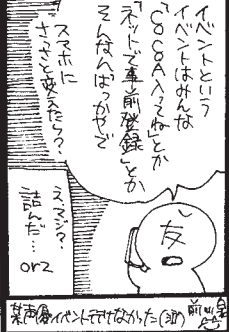 イベントという
イベントはみんな
「COCOA入ってね」とか
「ネットで事前登録」とか
そんなんばっかやで
スマホに
さっさと変えたら?
友
え、マジ??
詰んだ…
orz
某声優イベント なかった(泣)